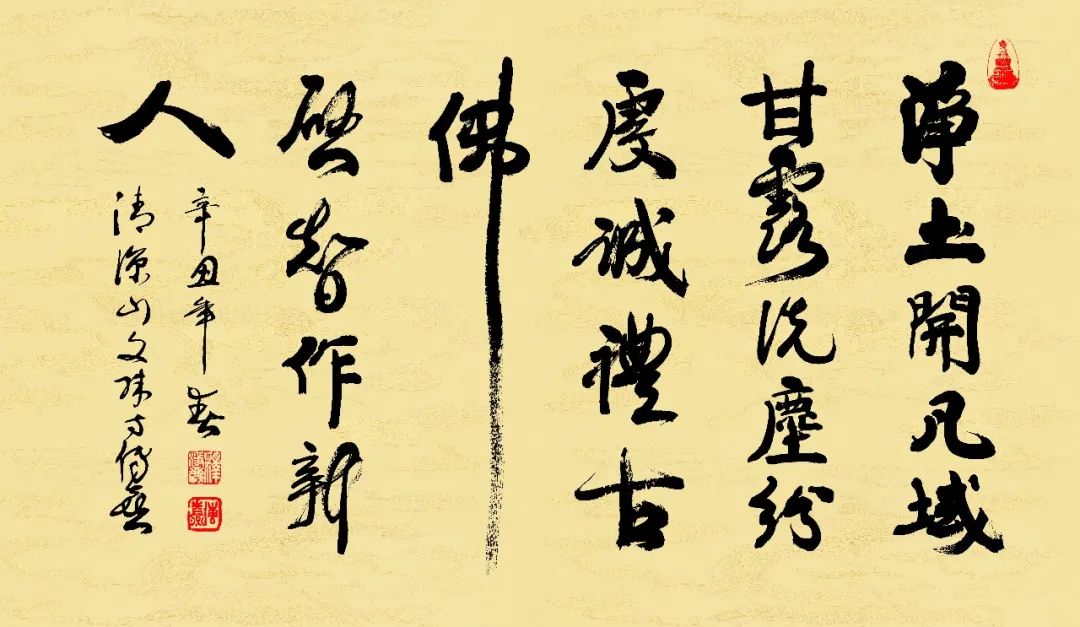 淨土開凡域
甘露洗塵紛
虔誠禮古
佛
啓智作新
人
辛丑年春
清涼山文殊寺